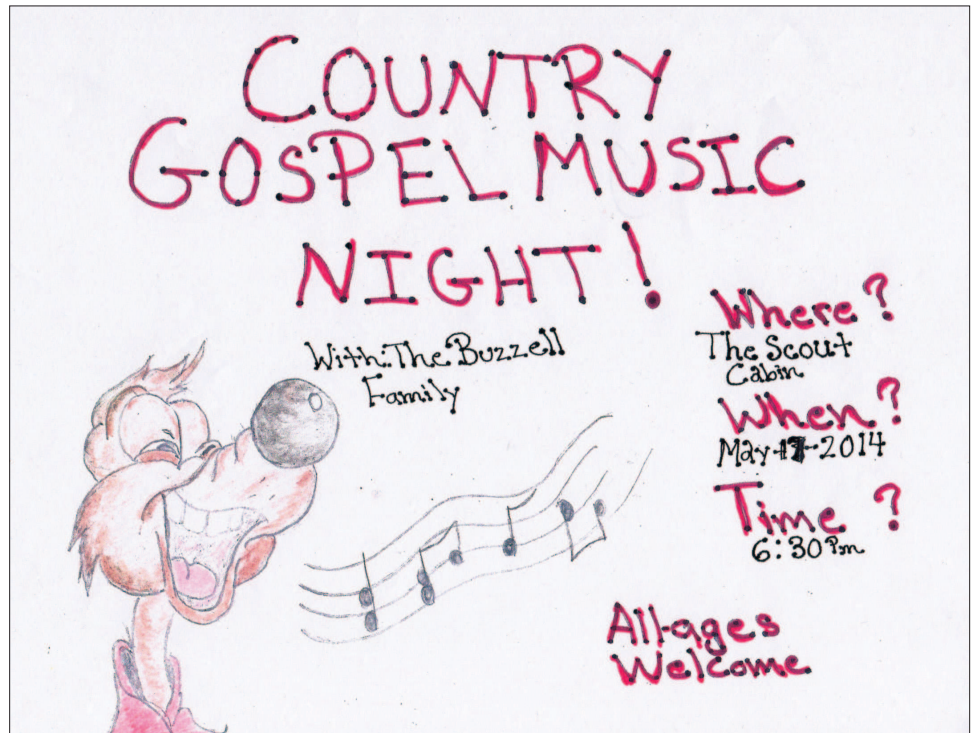 COUNTRY
GOSPEL MUSIC
NIGHT!
With: The Buzzell
Family
Where?
The Scout
Cabin
When?
May-17-2014
Time?
6:30 Pm
All-ages
Welcome